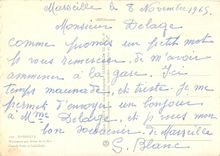 Marseille le 8 Novembre 1965
Monsieur Delage
comme promis un petit mot
pr vous remercier, de m'avoir
ammener à la gare. Ici
temps maussade, et triste. Je me
permet d'envoyer un bonjour
à Mme Delage, et pr vous mon
bon souvenir de Marseille
S. Blanc